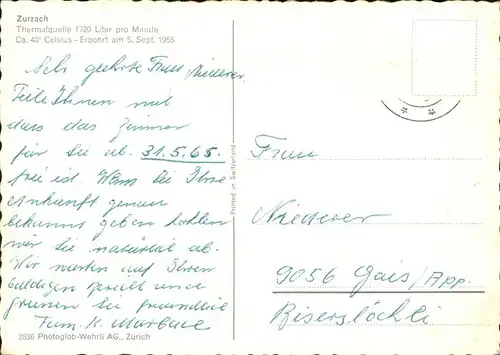 Zurzach
Thermalquelle 1720 Liter pro Minute
Ca. 40° Celsius – Erbohrt am 5. Sept. 1955
Sehr geehrte Frau Niederer
Teile Ihnen mit
dass das Zimmer
für Sie ab. 31.5.65.
frei ist. Wenn Sie Ihre
Ankunft genau
bekannt geben hohlen
wir Sie natürlich ab.
Wir warten auf Ihren
baldigen und
grüssen Sie freundlich
Fam. K.
2836 Photoglob-Wehrli AG., Zürich
Printed in Switzerland
Frau
Niederer
9056 Gais/App.